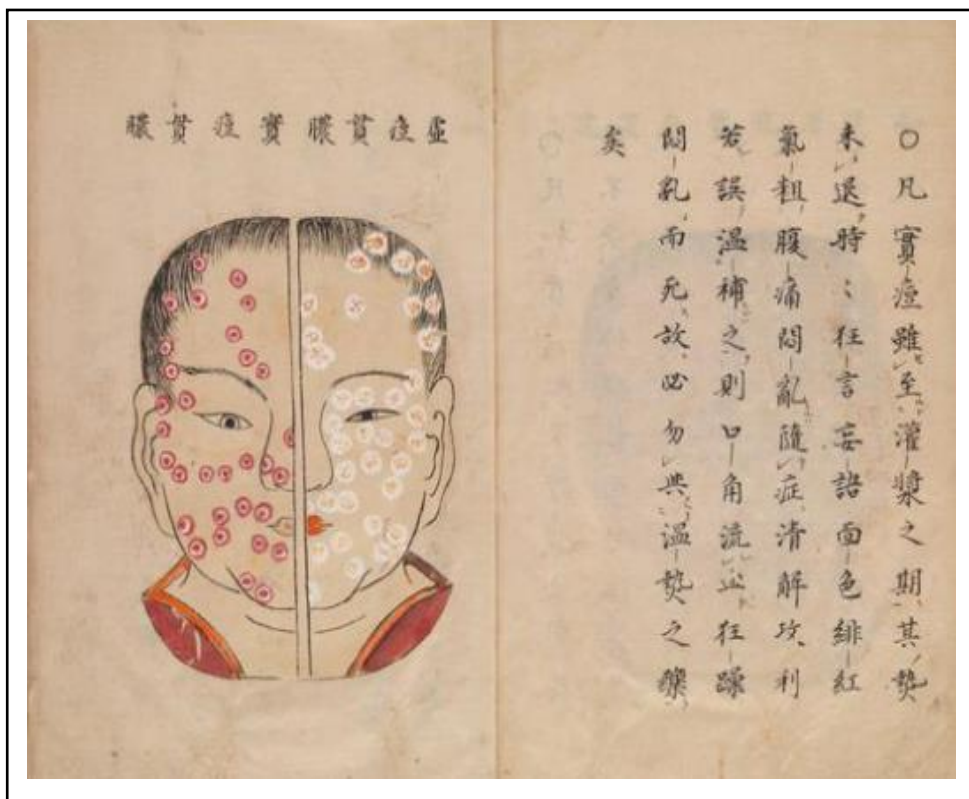 ○凡實痘雖至灌漿之期其熱
未退時〻狂言妄語面色緋紅
氣粗腹痛悶亂隨症清解攻利
若誤溫補之則口角流血狂躁
悶乱而死故必勿與溫熱之藥
矣
虛痘貫膿 實痘貫膿